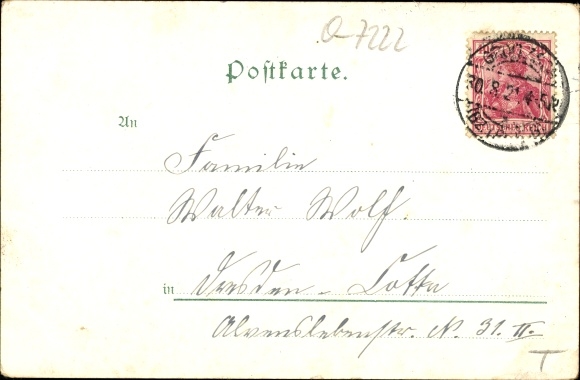 Q-7222
Postkarte.
An
Familie
Walter Wolf.
in Dresden-Cotta
Alvenslebenstr. N. 31. II.
T